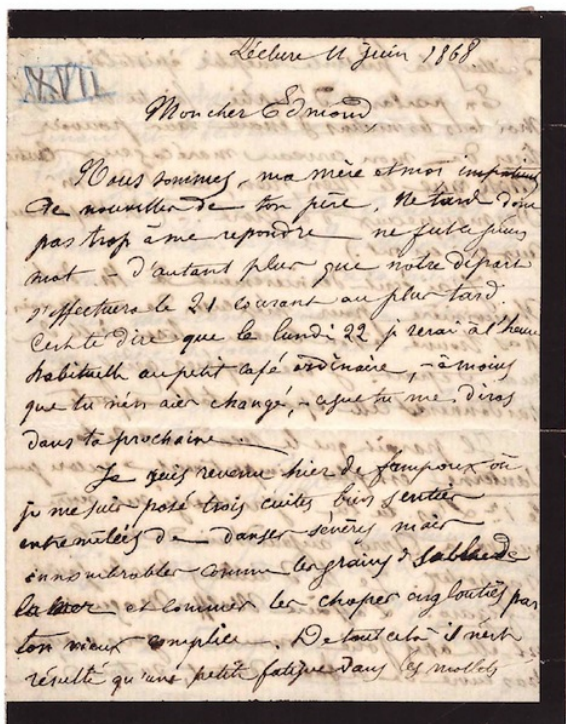 XVII
Lécluse 11 juin 1868
Mon cher Edmond
Nous sommes, ma mère et moi impatients
de nouvelles de ton père. Ne tarde donc
pas trop à me répondre ne fut-ce qu'un
mot – d'autant plus que notre départ
s'effectuera le 21 courant au plus tard.
C'est te dire que le lundi 22 je serai à l'heure
habituelle au petit café ordinaire, – à moins
que tu n'en aies changé, – ce que tu me diras
dans ta prochaine. –
Je suis revenu hier de Fampoux où
je me suis posé trois cuites bien senties
entremêlées de danses sévères mais
innombrables comme les grains de sable de
la mer et comme les chopes englouties par
ton vieux complice. De tout cela il n'est
résulté qu'une petite fatigue dans les mollets